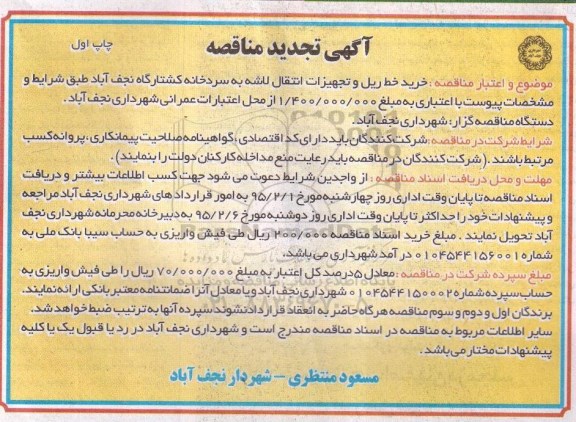 آگهی تجدید مناقصه
چاپ اول
موضوع و اعتبار مناقصه : خرید خط ریل و تجهیزات انتقال لاشه به سردخانه کشتارگاه نجف آباد طبق شرایط و
مشخصات پیوست با اعتباری به مبلغ ۱/۴۰۰/۰۰۰/۰۰۰ از محل اعتبارات عمرانی شهرداری نجف آباد.
دستگاه مناقصه گزار : شهرداری نجف آباد.
شرایط شرکت در مناقصه : شرکت کنندگان باید دارای کد اقتصادی ، گواهینامه صلاحیت پیمانکاری ، پروانه کسب
مرتبط باشند . (شرکت کنندگان در مناقصه باید رعایت منع مداخله کارکنان دولت را بنمایند).
مهلت و محل دریافت اسناد مناقصه : از واجدین شرایط دعوت می شود جهت کسب اطلاعات بیشتر و دریافت
اسناد مناقصه تا پایان وقت اداری روز چهارشنبه مورخ ۹۵/۲/۱ به امور قرارداد های شهرداری نجف آباد مراجعه
و پیشنهادات خود را حداکثر تا پایان وقت اداری روز دوشنبه مورخ ۹۵/۲/۶ به دبیرخانه محرمانه شهرداری نجف
آباد تحویل نمایند . مبلغ خرید اسناد مناقصه ۲۰۰/۰۰۰ ریال طی فیش واریزی به حساب سیبا بانک ملی به
شماره ۰۱۰۴۵۴۴۱۵۶۰۰۱ در آمد شهرداری می باشد.
مبلغ سپرده شرکت در مناقصه : معادل ۵ درصد کل اعتبار به مبلغ ۷۰/۰۰۰/۰۰۰ ریال را طی فیش واریزی به
حساب سپرده شماره ۰۱۰۴۵۴۴۱۵۰۰۰۲ شهرداری نجف آباد و یا معادل آنرا ضمانتنامه معتبر بانکی ارائه نمایند.
برندگان اول و دوم و سوم مناقصه هر گاه حاضر به انعقاد قرارداد نشوند سپرده آنها به ترتیب ضبط خواهد شد.
سایر اطلاعات مربوط به مناقصه در اسناد مناقصه مندرج است و شهرداری نجف آباد در رد یا قبول یک یا کلیه
پیشنهادات مختار می باشد.
مسعود منتظری – شهردار نجف آباد